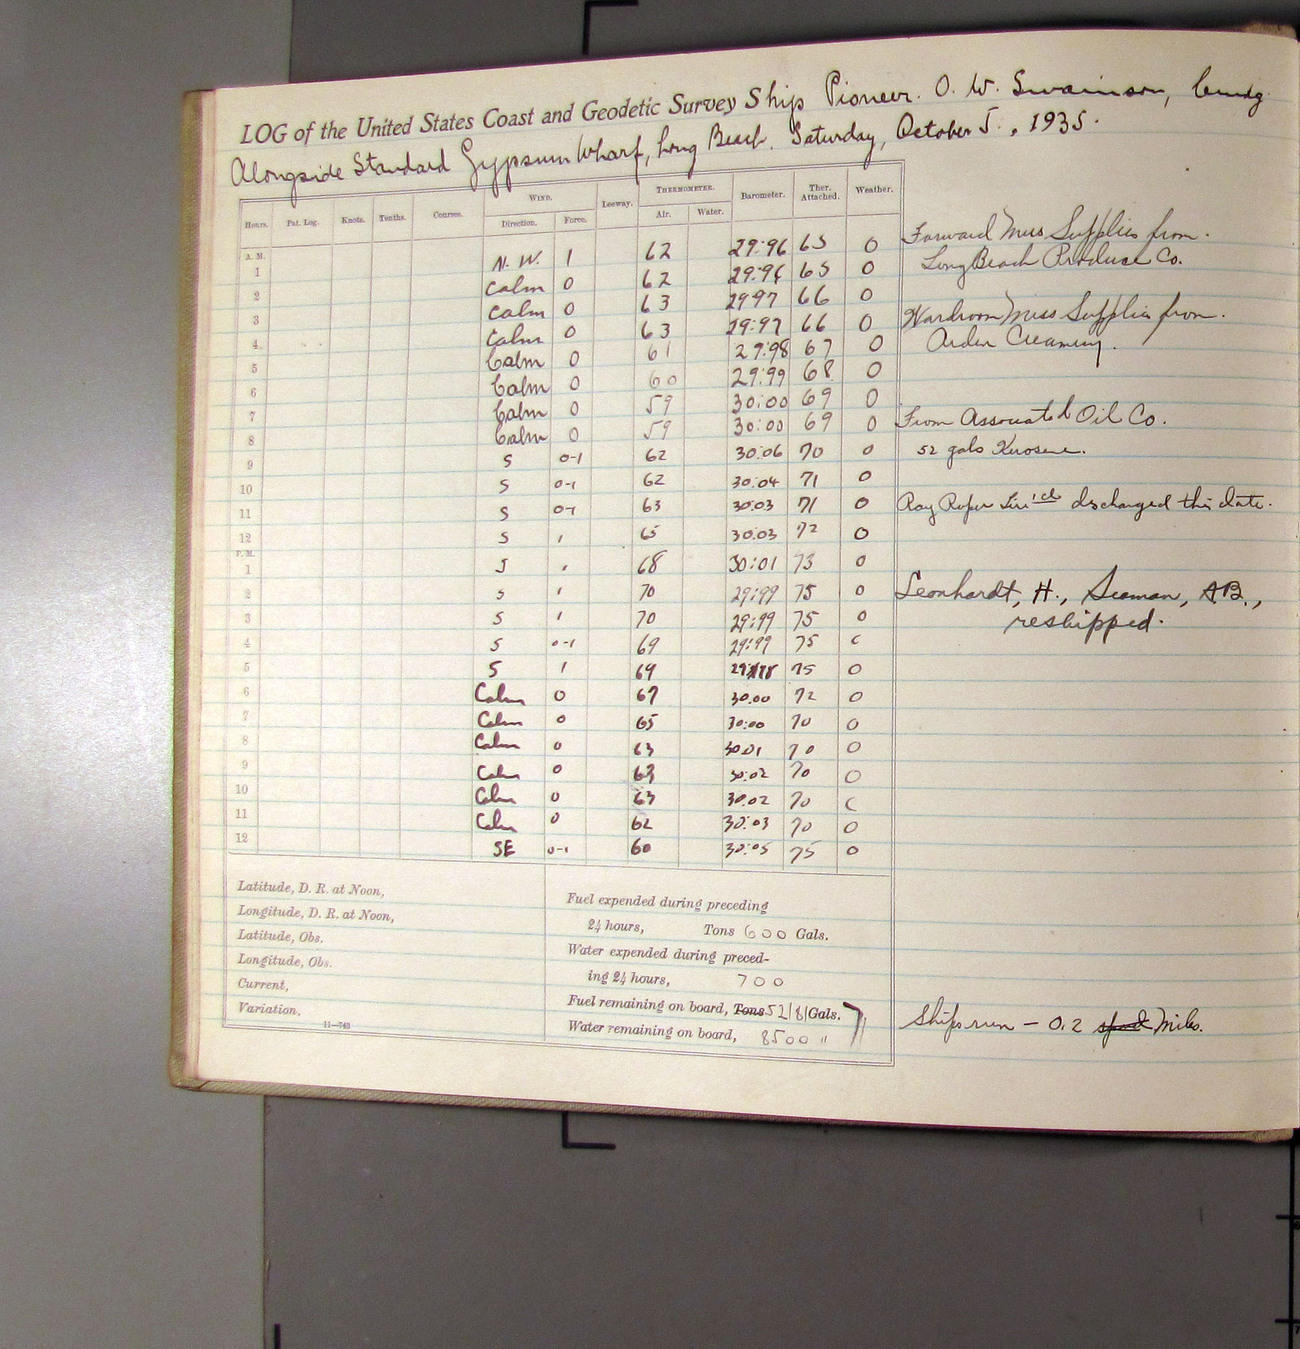 LOG of the United States Coast and Geodetic Survey Ship Pioneer. O. W. Swainson, Comdg.
Alongside Standard Gypsum Wharf, Long Beach. Saturday, October 5., 1935.
Hours. Pat. Log. Knots. Tenths. Courses. WIND. Direction. Force. Leeway. THERMOMETER. Air. Water. Barometer. Ther. Attached. Weather.
A. M.
1 N. W. 1 62 29:96 65 O
2 Calm 0 62 29:96 65 O
3 Calm 0 63 29 97 66 O
4 Calm 0 63 29:97 66 O
5 Calm 0 61 29:98 67 O
6 Calm 0 60 29:99 68 O
7 Calm 0 59 30:00 69 O
8 Calm 0 59 30:00 69 O
9 S 0-1 62 30:06 70 O
10 S 0-1 62 30:04 71 O
11 S 0-1 63 30:03 71 O
12 S 1 65 30:03 72 O
P. M.
1 S 1 68 30:01 73 O
2 S 1 70 29:99 75 O
3 S 1 70 29:99 75 O
4 S 0-1 69 29:99 75 C
5 S 1 69 75 O
6 Calm 0 67 30.00 72 O
7 Calm 0 65 30:00 70 O
8 Calm 0 63 30 01 70 O
9 Calm 0 63 30:02 70 O
10 Calm 0 63 30.02 70 C
11 Calm 0 62 30:03 70 O
12 SE 0-1 60 30:05 75 O
Forward Mess Supplies from.
Long Beach Produce Co.
Wardroom Mess Supplies from.
Arden Creamery.
From Associated Oil Co.
52 gals Kerosene.
Ray Roper discharged this date.
Leonhardt, H., Seaman, AB.,
reshipped.
Latitude, D. R. at Noon,
Longitude, D. R. at Noon,
Latitude, Obs.
Longitude, Obs.
Current,
Variation,
11—743
Fuel expended during preceding
24 hours, Tons 600 Gals.
Water expended during preced-
ing 24 hours, 700
Fuel remaining on board, Tons 52181 Gals.
Water remaining on board, 8500 "
Ships run — 0.2 Miles.